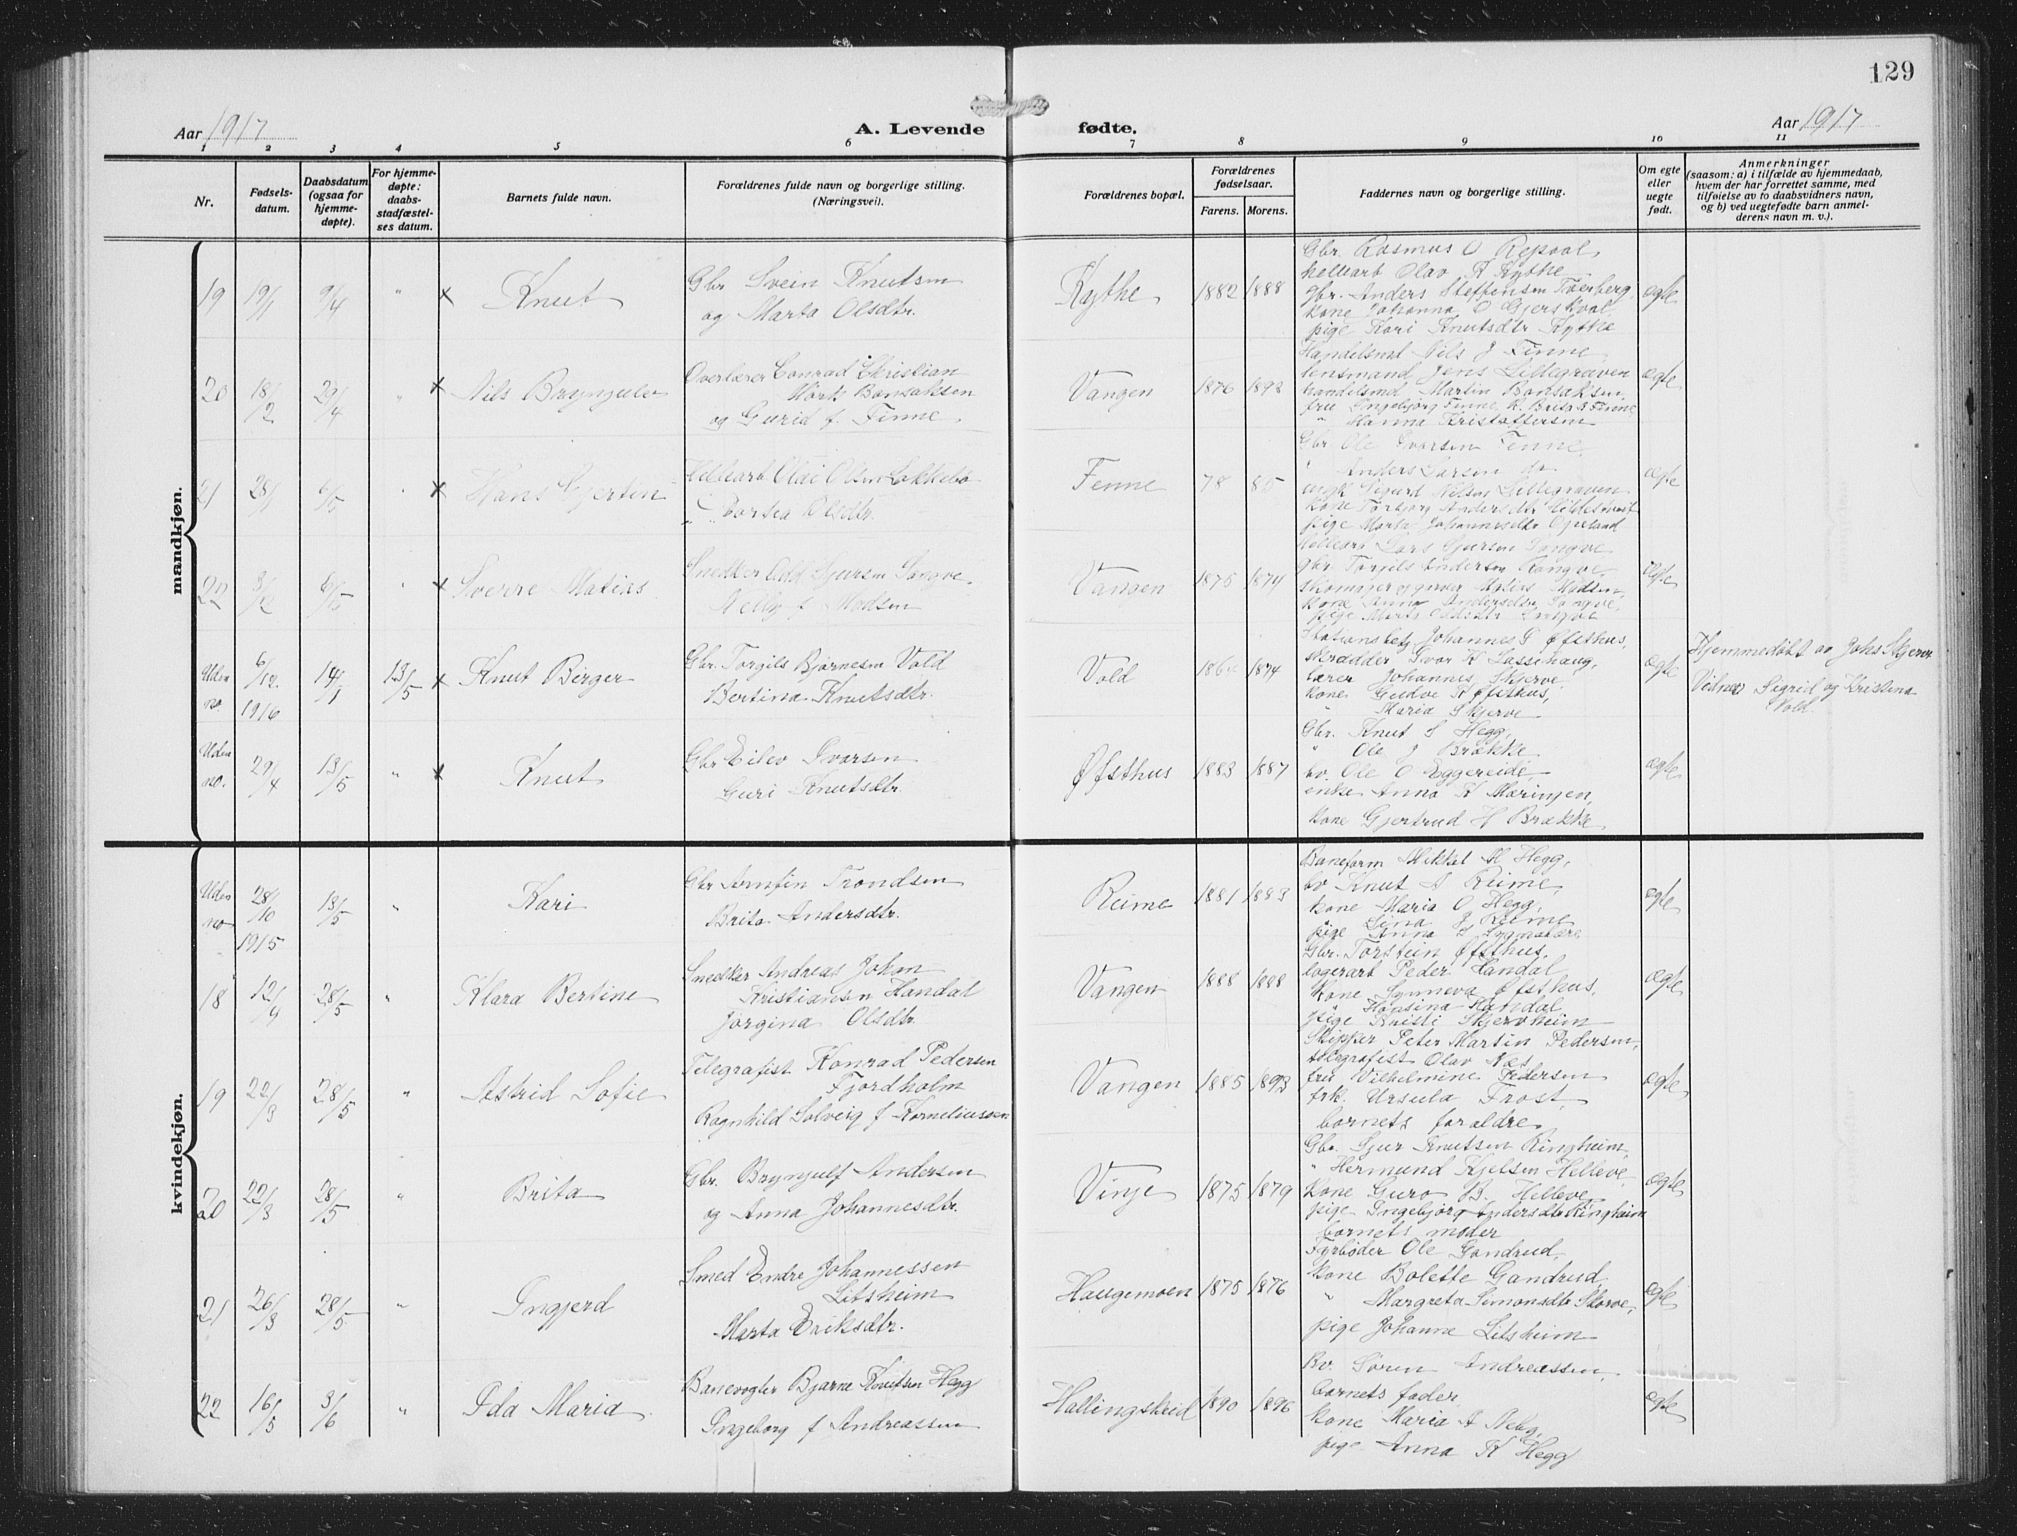 129
Aar 1917
A. Levende fødte.
Aar 1917
1 2 3 4 5 6 7 8 9 10 11
Nr.
Fødsels-
datum.
Daabsdatum
(ogsaa for
hjemme-
døpte).
For hjemme-
døpte:
daabs-
stadfæstel-
ses datum.
Barnets fulde navn.
Forældrenes fulde navn og borgerlige stilling.
(Næringsvei).
Forældrenes bopæl.
Forældrenes
fødselsaar.
Farens. Morens.
Faddernes navn og borgerlige stilling.
Om egte
eller
uegte
født.
Anmerkninger
(saasom: a) i tilfælde av hjemmedaab,
hvem der har forrettet samme, med
tilføielse av to daabsvidners navn,
og b) ved uegtefødte barn anmel-
derens navn m. v.).
mandkjøn.
19 19/1 9/4 " x Knut
Gbr Svein Knutsen
og Marta Olsdtr.
Kythe 1882 1888
Gbr. Rasmus O Repaal,
helleart Olav K Kythe
gbr. Anders Steffensen Tverberg,
kone Johanna O Gjerskval,
pige Kari Knutsdtr Kythe
egte
20 18/2 29/4 " x Nils Brynjulv
Overlærer Conrad Christian
Mörk Bonsaksen
og Gurid f. Finne.
Vangen 1876 1892
Handelsmd Nils J Finne,
lensmand Jens Lillegraven
handelsmd Martin Bonsaksen,
fru Ingebjørg Finne, k. Brita B Finne
" Hanna Kristoffersen
egte
21 28/1 6/5 " x Hans Gjertin
Helleart Olai Olsen Løkkebø
" Dortea Olsdtr.
Finne 78 85
Gbr Ole Ivarsen Finne,
" Anders Larsen do
ungk Sigurd Nilsen Lillegraven
kone Torbjørg Andersdtr
pige Marta Johannesdtr Opeland
egte
22 3/12 6/5 " x Sverre Matias
Snedker Odd Sjursen Songve.
Nelly f Madsen
Vangen 1875 1874
Helleart Lars Sjursen Songve
gbr Torgils Andersen Rongve,
skomager Matias Madsen,
kone Anna Andersdtr Songve,
pige Marta
egte
Uden
no
6/12
1916
14/1 13/5 x Knut Birger
Gbr. Torgils Bjørnesen Vold
Bertina Knutsdtr.
Vold 1874
Stationsbetj Johannes G Øfsthus,
skrædder Ivar K Lassehaug,
lærer Johannes Skjerve
kone Gudve K Øfsthus,
" Maria Skjerve
egte
Hjemmedøbt av Johs Skjerve
Vidner Sigrid og Kristina
Vold.
Uden
no.
29/4 13/5 " x Knut
Gbr Eilev Ivarsen
Guri Knutsdtr.
Øfsthus 1883 1887
Gbr. Knut S Hegg,
" Ole J Brække
bv. Ole O Eggereide,
enke Anna K Mæringen,
kone Gjertrud H Brække,
egte
kvindekjøn.
Uden
no
28/10
1915
13/5 " Kari
Gbr Arnfin Trondsen
Brita Andersdtr.
Reime 1881 1883
Baneform Mikkal M Hegg,
bv Knut J Reime,
kone Maria O Hegg,
" Sina J Reime
pige Anna
egte
18 12/4 28/5 " Klara Bertine
Snedker Andreas Johan
Kristiansen Handal
Jørgina Olsdtr.
Vangen 1888 1888
Gbr. Torstein Øfsthus,
lagerart Peder Handal
Kone Synneva Øfsthus,
" Hansina Handal
pige Kristi Skjervheim
egte
19 22/3 28/5 " Astrid Sofie
Telegrafist Konrad Pedersen
Fjordholm
Ragnhild Solveig f Korneliussen
Vangen 1885 1893
Skipper Peter Martin Pedersen,
telegrafist Olav Næs
fru Vilhelmine Pedersen
frk. Ursula Frost,
barnets forældre.
egte
20 22/3 28/5 " Brita
Gbr. Brynjulf Andersen
og Anna Johannesdtr.
Vinje 1875 1879
Gbr. Sjur Knutsen Ringheim,
" Hermund Kjelsen Helleve,
kone Guro B. Helleve
pige Ingebjørg Andersdtr Ringheim
barnets moder
egte
21 26/3 28/5 " Ingjerd
Smed Endre Johannessen
Litsheim
Marta Eriksdtr.
Haugemoen 1875 1876
Fyrbøder Ole Gandrud,
kone Bolette Gandrud
" Margreta Simonsdtr Skorve,
pige Johanna Litsheim
egte
22 16/5 3/6 " Ida Maria
Banevogter Bjarne Knutsen Hegg
Ingeborg f Andreassen
Hallingskeid 1890 1896
Bv. Søren Andreassen,
barnets fader
kone Maria A
pige Anna K Hegg
egte